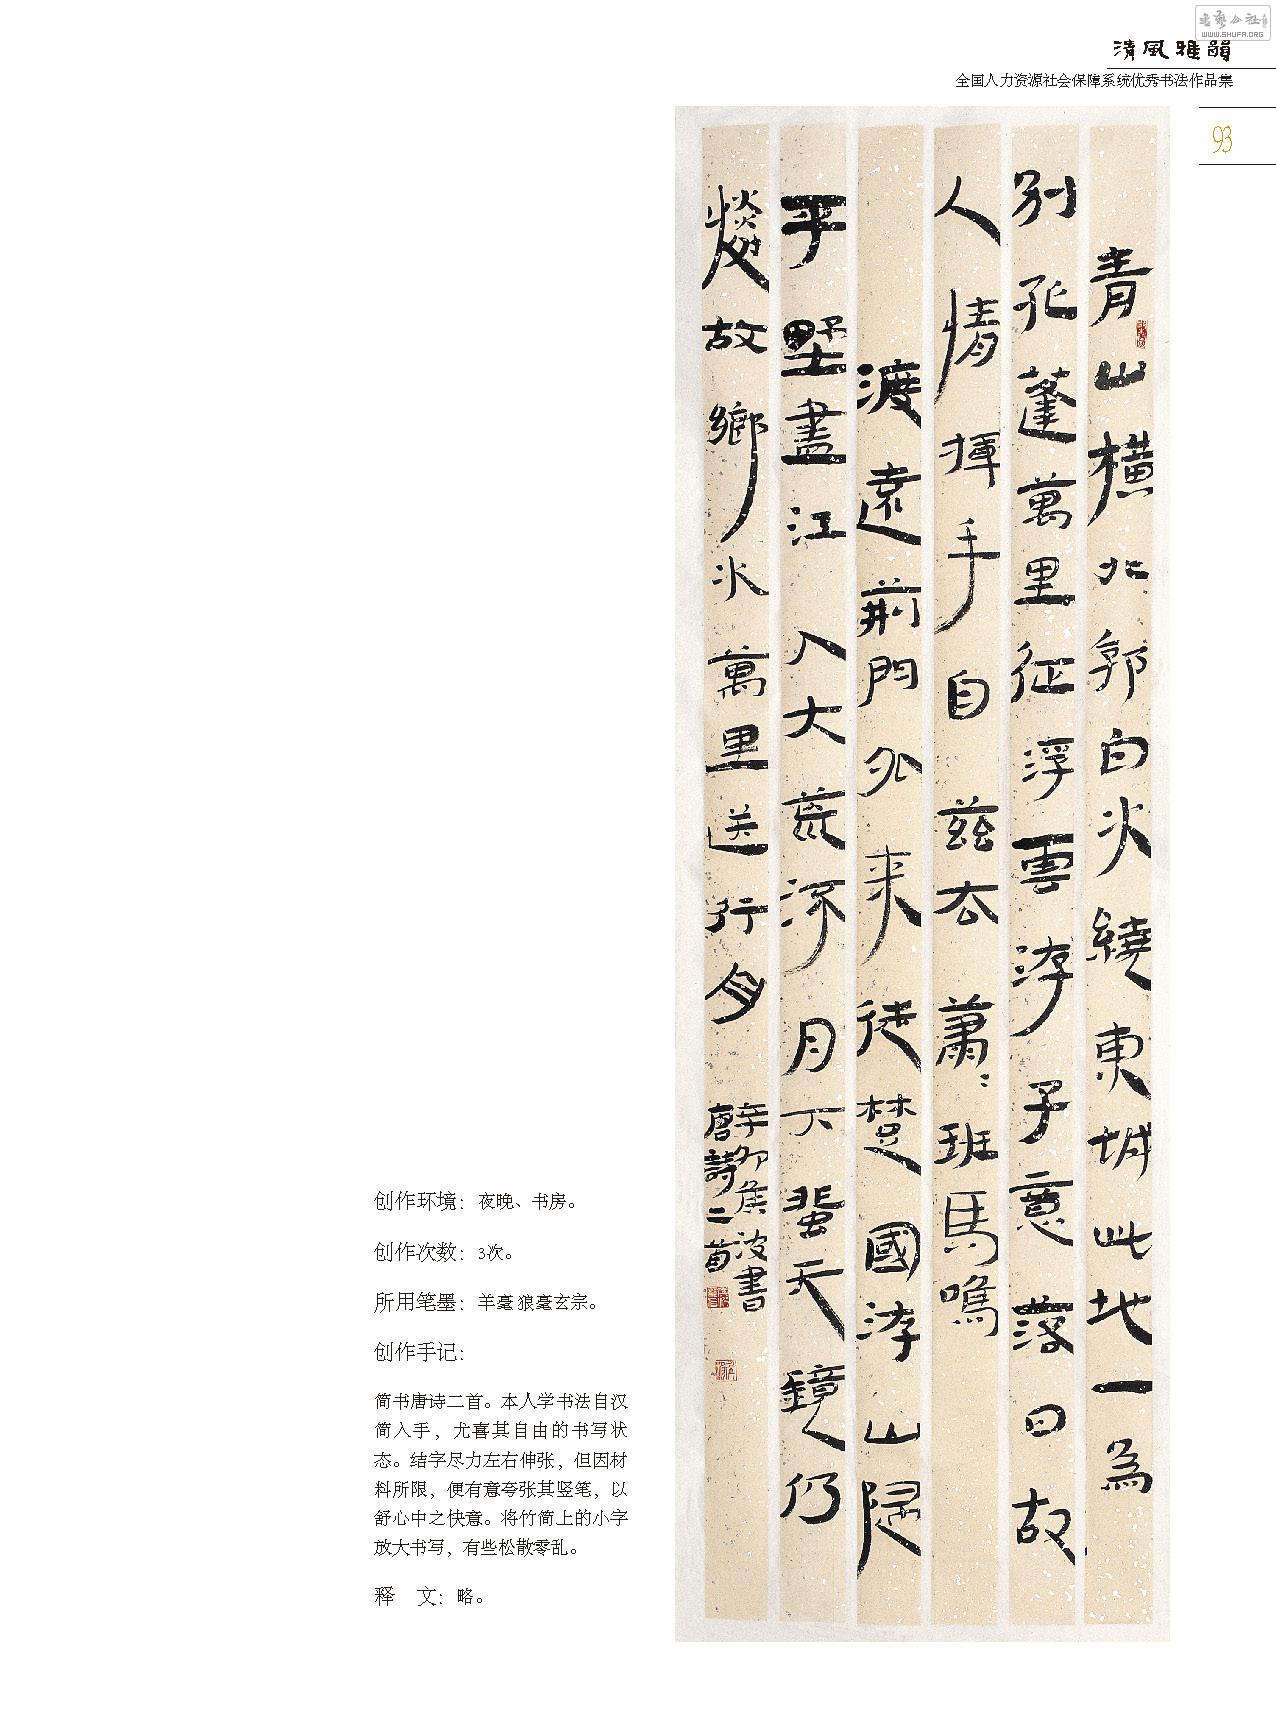 书艺公社
WWW.SHUFA.ORG
清風雅韻
全国人力资源社会保障系统优秀书法作品集
93
青山橫北郭白水繞東城此地一為
別孤蓬萬里征浮雲游子意落日故
人情揮手自茲去蕭〻班馬鳴
渡遠荊門外來從楚國游山隨
平野盡江入大荒流月下蜚天鏡仍
憐故鄉水萬里送行舟
辛卯侯波書
唐詩二首
创作环境：夜晚、书房。
创作次数：3次。
所用笔墨：羊毫 狼毫玄宗。
创作手记：
简书唐诗二首。本人学书法自汉
简入手，尤喜其自由的书写状
态。结字尽力左右伸张，但因材
料所限，便有意夸张其竖笔，以
舒心中之快意。将竹简上的小字
放大书写，有些松散零乱。
释　文：略。